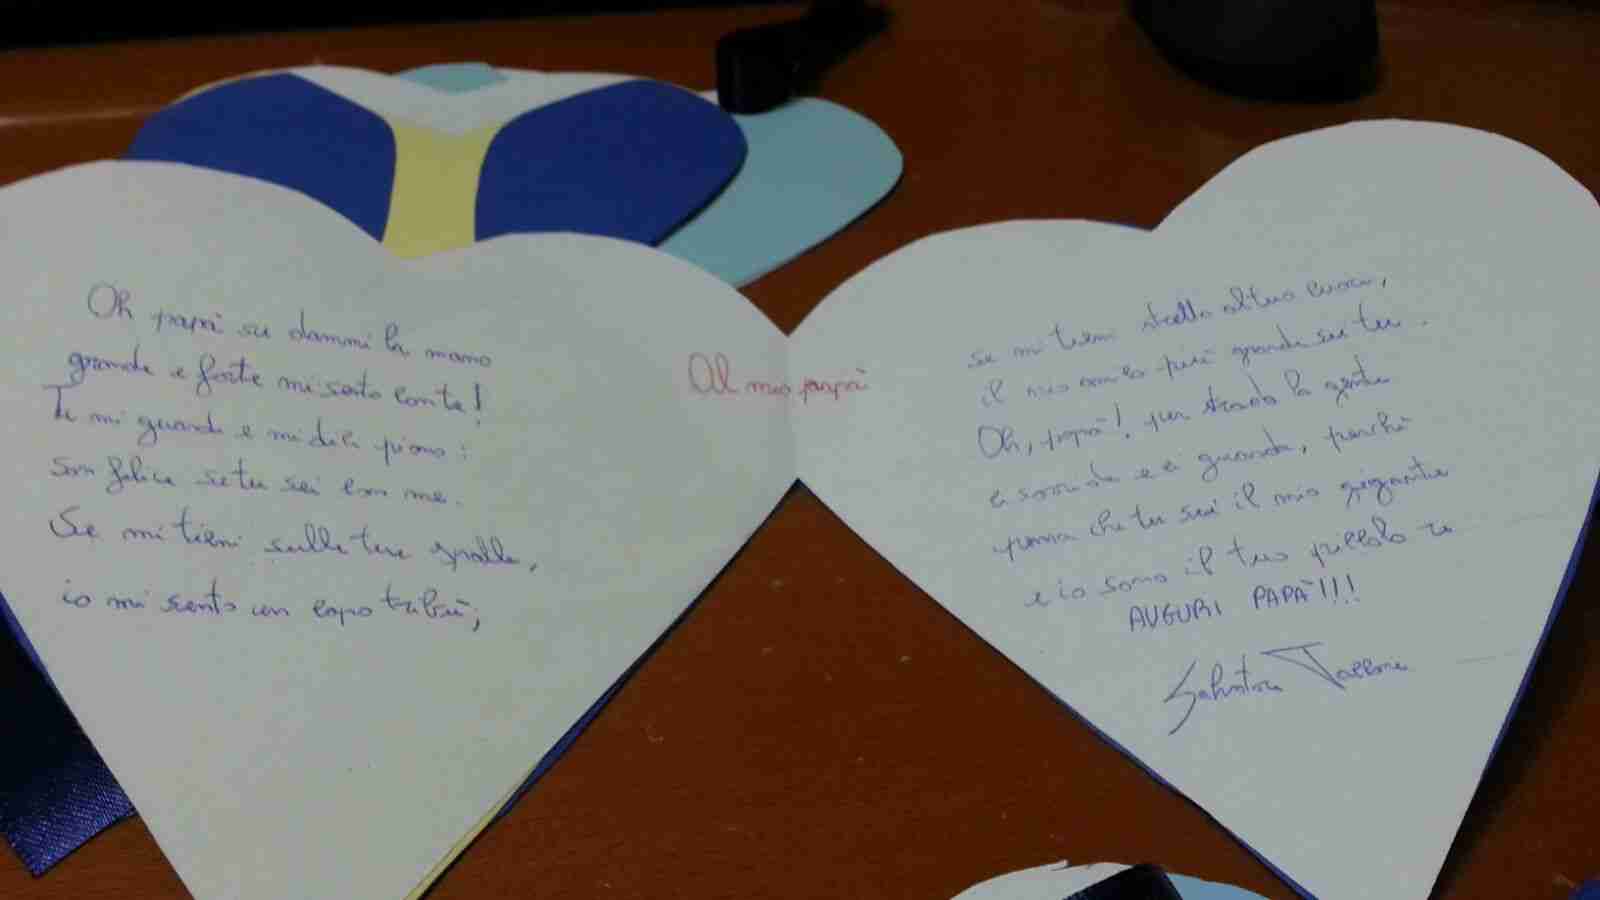 Al mio papà
Oh papà su dammi la mano
grande e forte mi sento con te!
Tu mi guardi e mi dici piano:
son felice se tu sei con me.
Se mi tieni sulle tue spalle,
io mi sento un capo tribù;
se mi tieni stretto al tuo cuore,
il mio mondo più grande sei tu.
Oh, papà! per strada la gente
ci sorride e ci guarda, perché
pensa che tu sei il mio gigante
e io sono il tuo piccolo re
AUGURI PAPÀ!!!
Salvatore